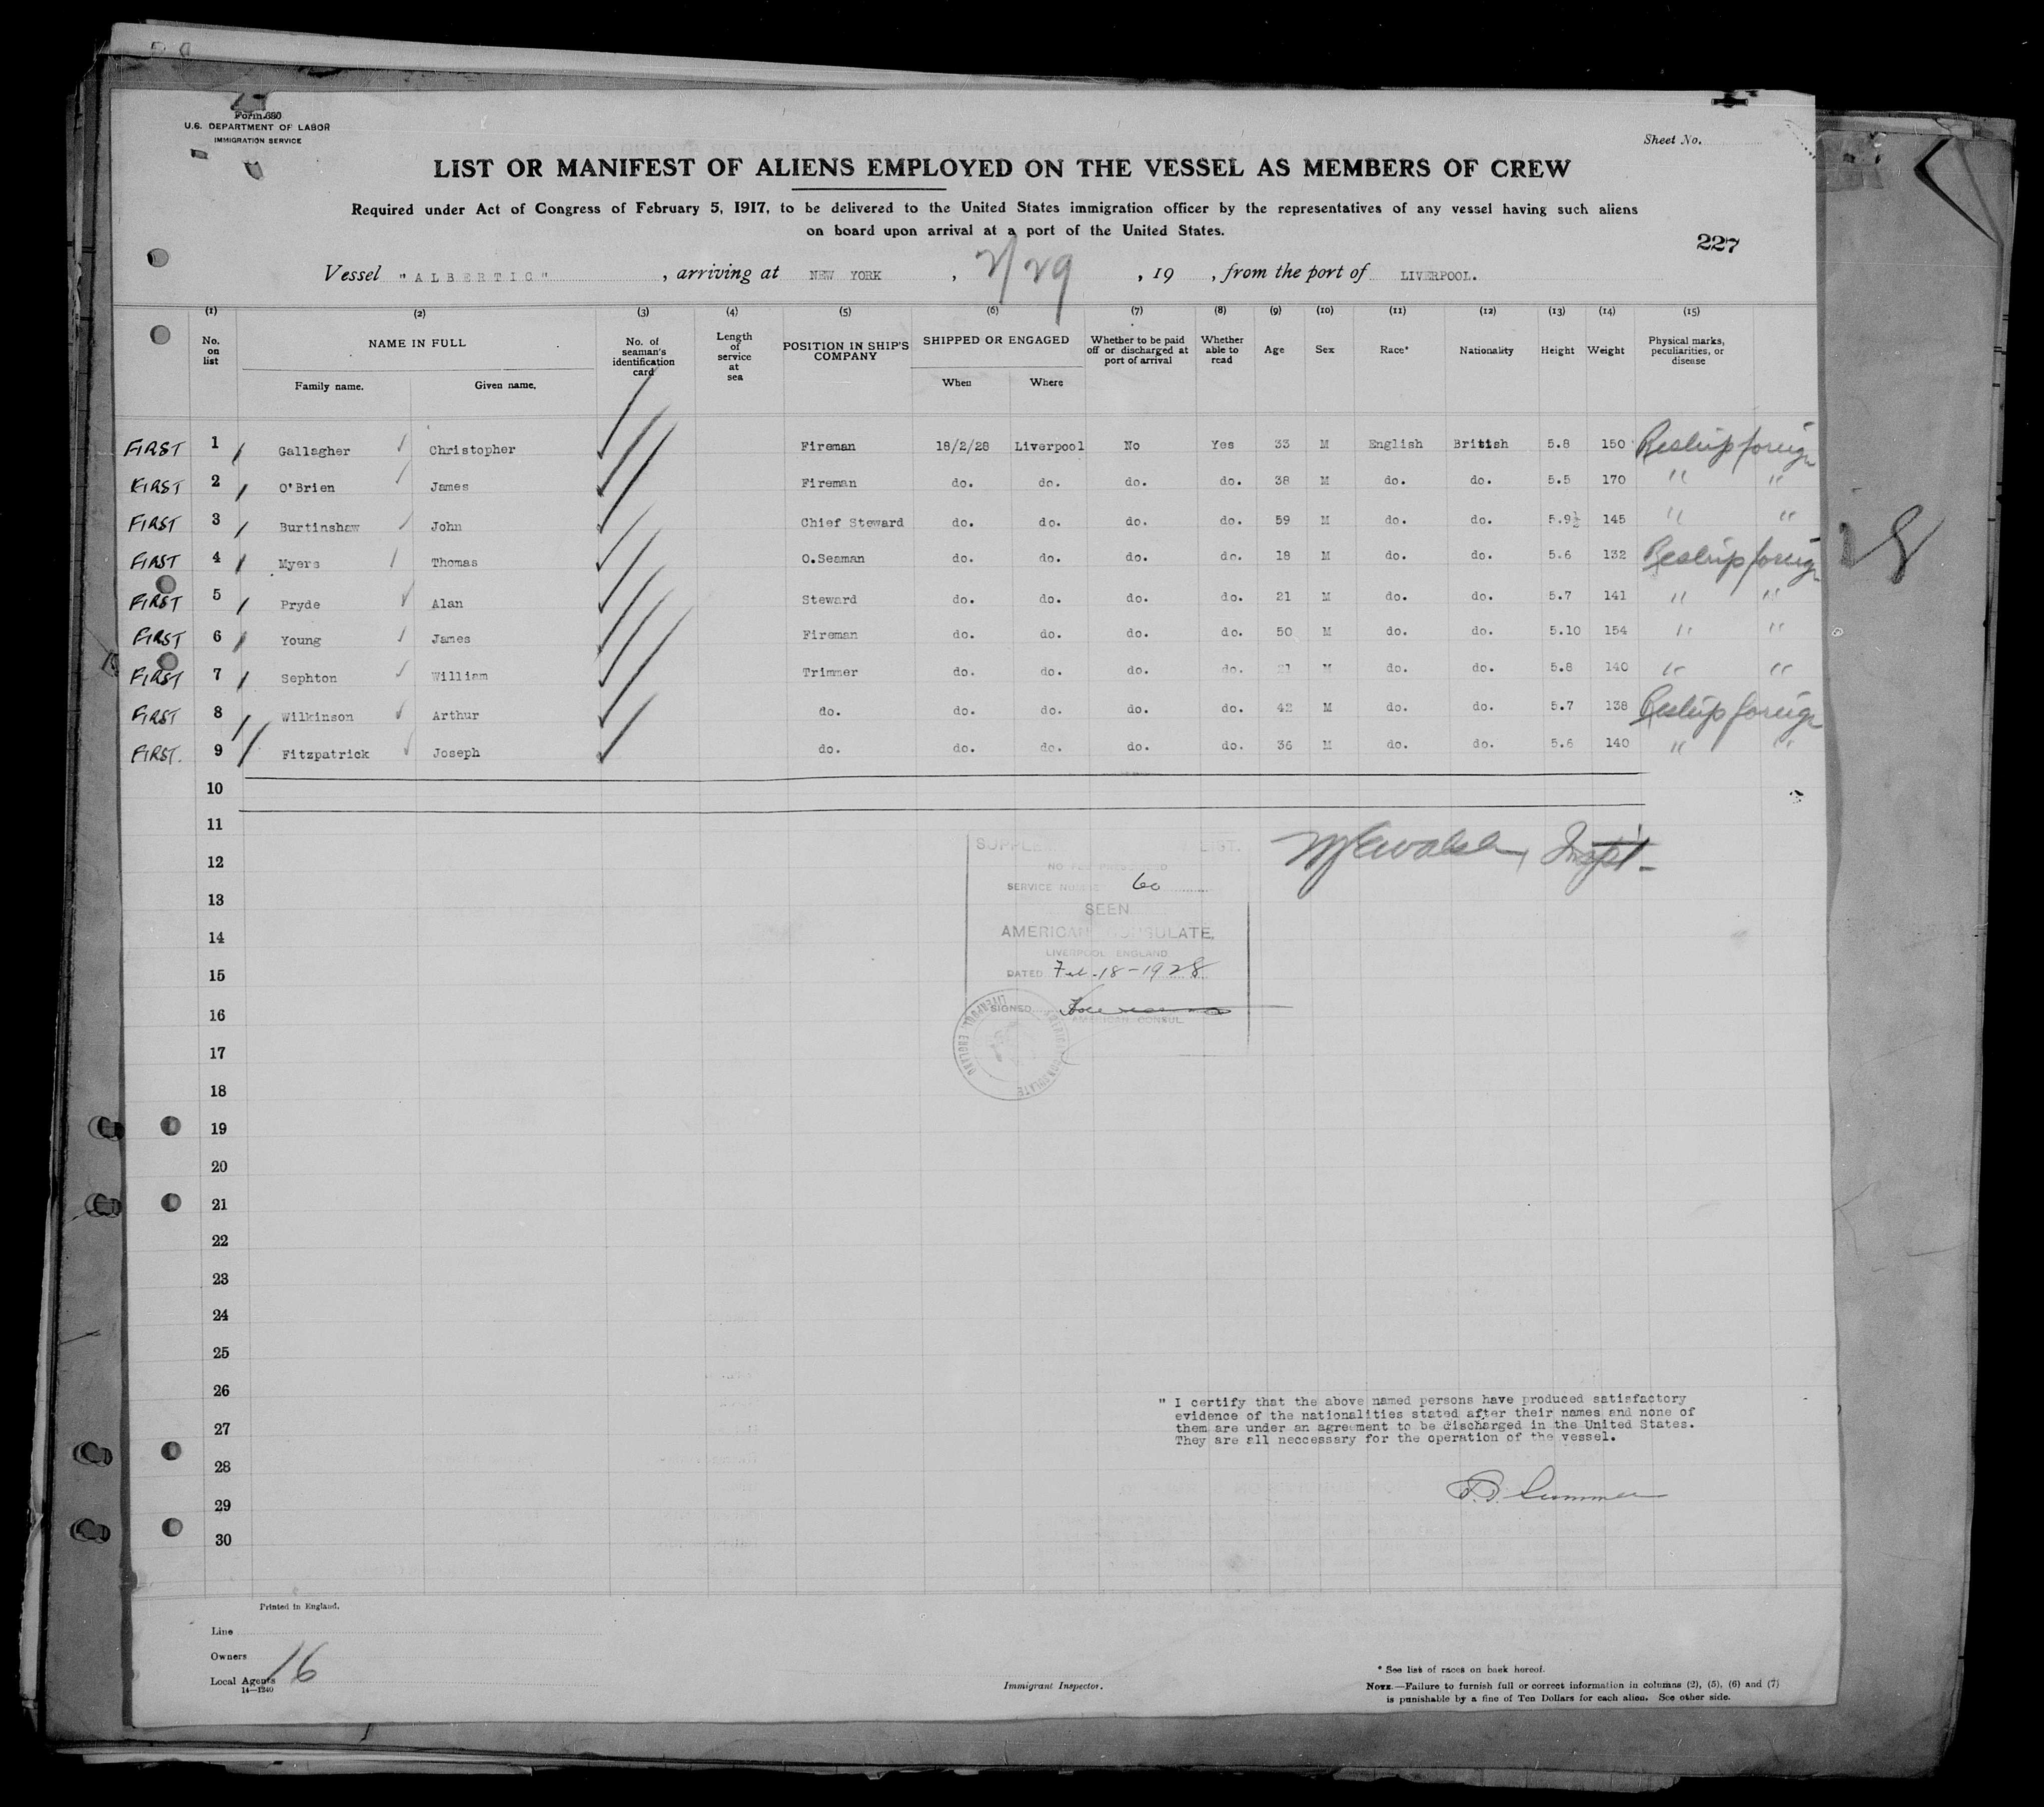 Form 680
U.S. DEPARTMENT OF LABOR
IMMIGRATION SERVICE
Sheet No.
LIST OR MANIFEST OF ALIENS EMPLOYED ON THE VESSEL AS MEMBERS OF CREW
Required under Act of Congress of February 5, 1917, to be delivered to the United States immigration officer by the representatives of any vessel having such aliens
on board upon arrival at a port of the United States.
227
Vessel "ALBERTIC", arriving at NEW YORK, 2/29, 19 , from the port of LIVERPOOL.
(1) (2) (3) (4) (5) (6) (7) (8) (9) (10) (11) (12) (13) (14) (15)
No. on list NAME IN FULL Family name. Given name. No. of seaman's identification card Length of service at sea POSITION IN SHIP'S COMPANY SHIPPED OR ENGAGED When Where Whether to be paid off or discharged at port of arrival Whether able to read Age Sex Race* Nationality Height Weight Physical marks, peculiarities, or disease
FIRST 1 Gallagher Christopher Fireman 18/2/28 Liverpool No Yes 33 M English British 5.8 150 Reship foreign
FIRST 2 O'Brien James Fireman do. do. do. do. 38 M do. do. 5.5 170 " "
FIRST 3 Burtinshaw John Chief Steward do. do. do. do. 59 M do. do. 5.9½ 145 " "
FIRST 4 Myers Thomas O.Seaman do. do. do. do. 18 M do. do. 5.6 132 Reship foreign
FIRST 5 Pryde Alan Steward do. do. do. do. 21 M do. do. 5.7 141 " "
FIRST 6 Young James Fireman do. do. do. do. 50 M do. do. 5.10 154 " "
FIRST 7 Sephton William Trimmer do. do. do. do. 21 M do. do. 5.8 140 " "
FIRST 8 Wilkinson Arthur do. do. do. do. do. 42 M do. do. 5.7 138 Reship foreign
FIRST. 9 Fitzpatrick Joseph do. do. do. do. do. 36 M do. do. 5.6 140 " "
28
10
11
12
13
14
15
16
17
18
19
20
21
22
23
24
25
26
27
28
29
30
Walsh, Inspt.
LIST.
SERVICE 60
SEEN
AMERICAN CONSULATE,
LIVERPOOL ENGLAND
DATED Feb-18-1928
SIGNED
AMERICAN CONSUL
AMERICAN CONSULATE LIVERPOOL, ENGLAND
" I certify that the above named persons have produced satisfactory
evidence of the nationalities stated after their names and none of
them are under an agreement to be discharged in the United States.
They are all neccessary for the operation of the vessel.
Printed in England.
Line
Owners
Local Agents 16
14—1240
Immigrant Inspector.
* See list of races on back hereof.
NOTE.—Failure to furnish full or correct information in columns (2), (5), (6) and (7)
is punishable by a fine of Ten Dollars for each alien. See other side.